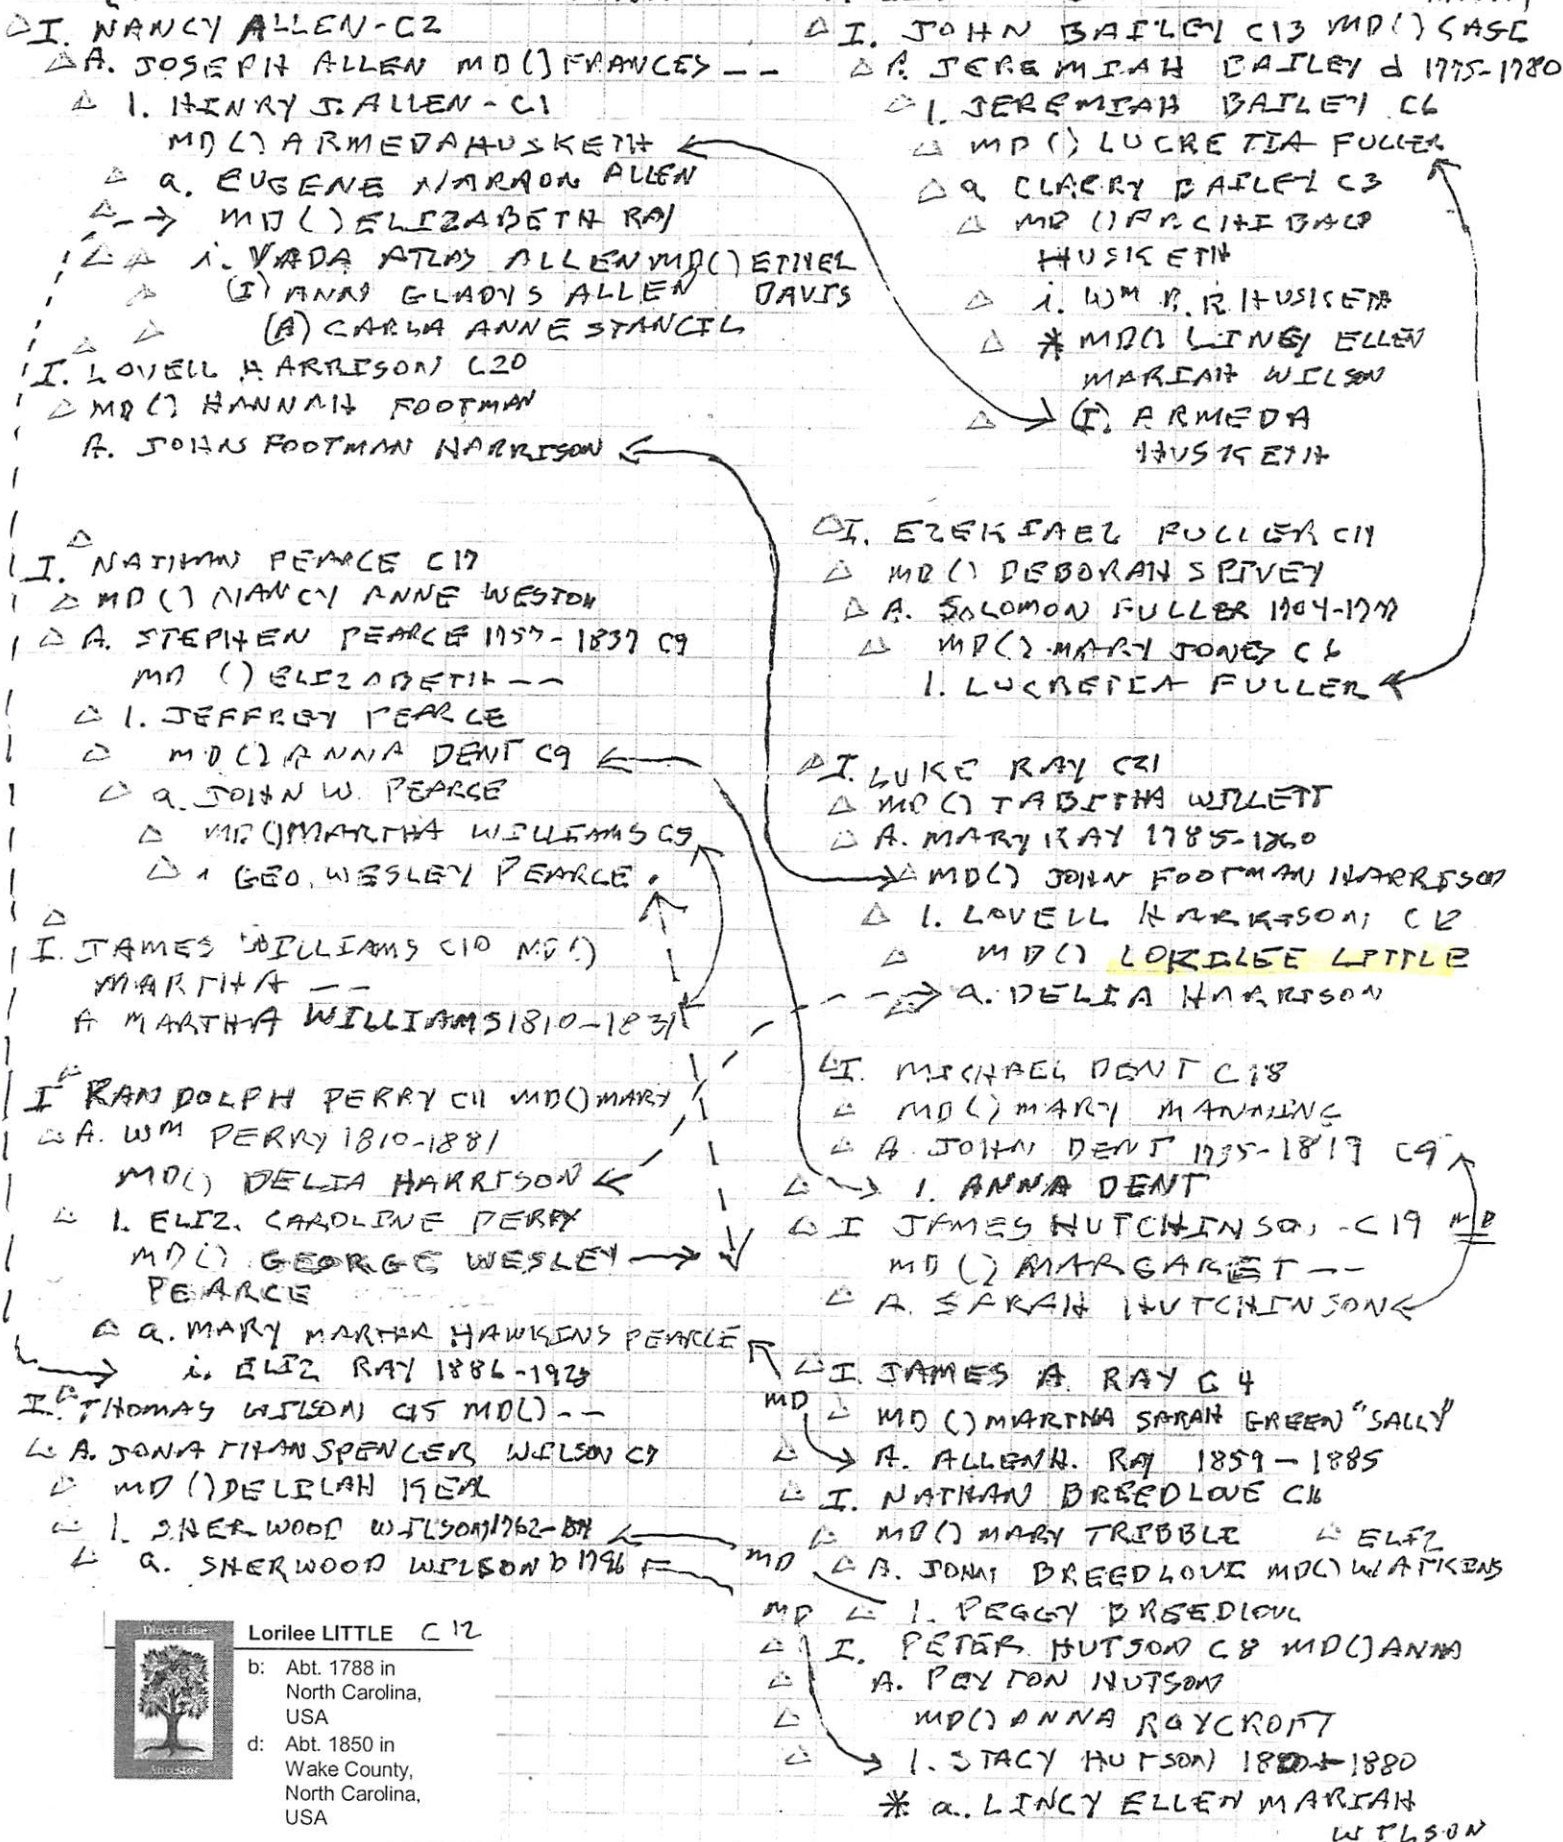 I. NANCY ALLEN-C2
A. JOSEPH ALLEN MD() FRANCES --
1. HENRY J. ALLEN - C1
MD() ARMEDA HUSKETH
a. EUGENE ALLEN
MD() ELIZABETH RAY
i. VADA ATLAS ALLEN MD() ETHEL
(I) ANN GLADYS ALLEN DAVIS
(A) CARLA ANNE STANCIL
I. LOVELL HARRISON C20
MD() HANNAH FOOTMAN
A. JOHN FOOTMAN HARRISON
I. NATHAN PEARCE C17
MD() NANCY ANNE WESTON
A. STEPHEN PEARCE 1757-1837 C9
MD () ELIZABETH --
1. JEFFREY PEARCE
MD() ANNA DENT C9
a. JOHN W. PEARCE
MD() MARTHA WILLIAMS C5
i GEO. WESLEY PEARCE
I. JAMES WILLIAMS C10 MD()
MARTHA --
A MARTHA WILLIAMS 1810-1831
I RANDOLPH PERRY C11 MD() MARY
A. WM PERRY 1810-1881
MD() DELIA HARRISON
1. ELIZ. CAROLINE PERRY
MD() GEORGE WESLEY
PEARCE
a. MARY MARTHA HAWKINS PEARCE
i. ELIZ RAY 1886-
I. THOMAS WILSON C15 MD() --
A. JONATHAN SPENCER WILSON C7
MD () DELILAH KEAL
1. SHERWOOD WILSON 1762-
a. SHERWOOD WILSON b 1796
Direct Line
Ancestor
Lorilee LITTLE C12
b: Abt. 1788 in
North Carolina,
USA
d: Abt. 1850 in
Wake County,
North Carolina,
USA
I. JOHN BAILEY C13 MD() CASE
A. JEREMIAH BAILEY d 1775-1780
1. JEREMIAH BAILEY C6
MD () LUCRETIA FULLER
a CLARRY BAILEY C3
MD () ARCHIBALD
HUSKETH
i. WM R. R. HUSKETH
* MD() LINCY ELLEN
MARIAH WILSON
(I). ARMEDA
HUSKETH
I. EZEKIAEL FULLER C14
MD() DEBORAH SPIVEY
A. SOLOMON FULLER
MD() MARY JONES C6
1. LUCRETIA FULLER
I. LUKE RAY C21
MD() TABITHA WILLETT
A. MARY RAY 1785-1860
MD() JOHN FOOTMAN HARRISON
1. LOVELL HARRISON C12
MD() LORILEE LITTLE
a. DELIA HARRISON
I. MICHAEL DENT C18
MD() MARY MANNING
A JOHN DENT 1735-1819 C9
1. ANNA DENT
I JAMES HUTCHINSON - C19 MD
MD() MARGARET --
A. SARAH HUTCHINSON
I. JAMES A. RAY C4
MD
MD () MARTHA SARAH GREEN "SALLY"
A. ALLEN H. RAY 1859-1885
I. NATHAN BREEDLOVE C16
MD() MARY TRIBBLE ELIZ
MD A. JOHN BREEDLOVE MD() WATKINS
MD 1. PEGGY BREEDLOVE
I. PETER HUTSON C8 MD() ANNA
A. PEYTON HUTSON
MD() ANNA ROYCROFT
1. STACY HUTSON 1880
* a. LINCY ELLEN MARIAH
WILSON